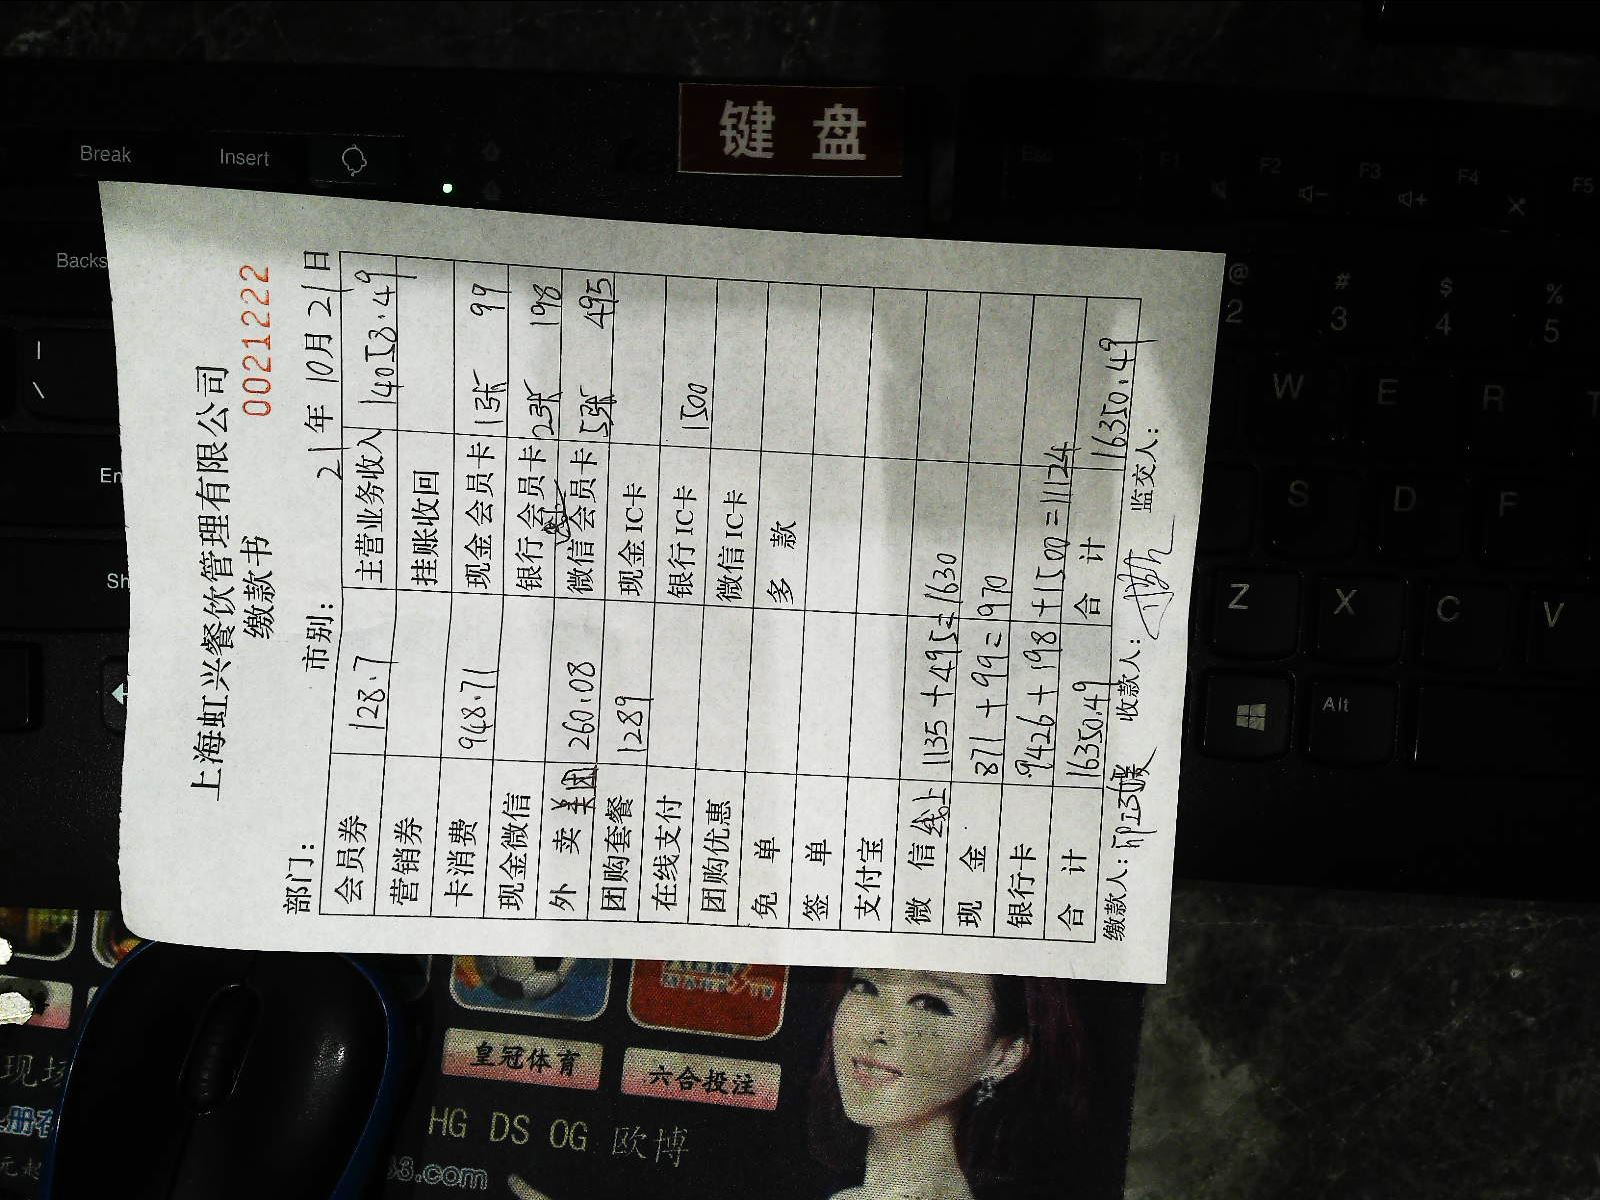 键 盘
Break
Insert
Backs
En
Sh
Esc
F1
F2
F3
F4
F5
@
2
#
3
$
4
%
5
W
E
R
S
D
F
Z
X
C
V
Alt
上海虹兴餐饮管理有限公司
缴款书
0021222
部门： 市别： 21年 10月 21日
会员券 128.7 主营业务收入 14058.49
营销券 挂账收回
卡消费 948.71 现金会员卡 1张 99
现金微信 银行会员卡 2张 198
外 卖 美团 260.08 微信会员卡 5张 495
团购套餐 1289 现金IC卡
在线支付 银行IC卡 1500
团购优惠 微信IC卡
免 单 多 款
签 单
支付宝
微 信 线上 1135+495=1630
现 金 871+99=970
银行卡 9426+198+1500=11124
合 计 16350.49 合 计 16350.49
缴款人： 收款人： 监交人：
皇冠体育
六合投注
HG DS OG 欧博
.com